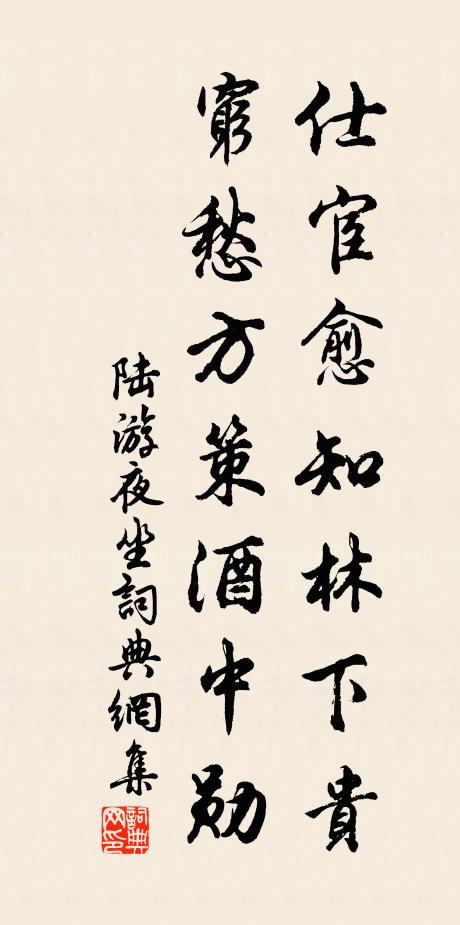 仕宦愈知林下貴
窮愁方策酒中勛
陆游夜坐詞典網集
詞典网印